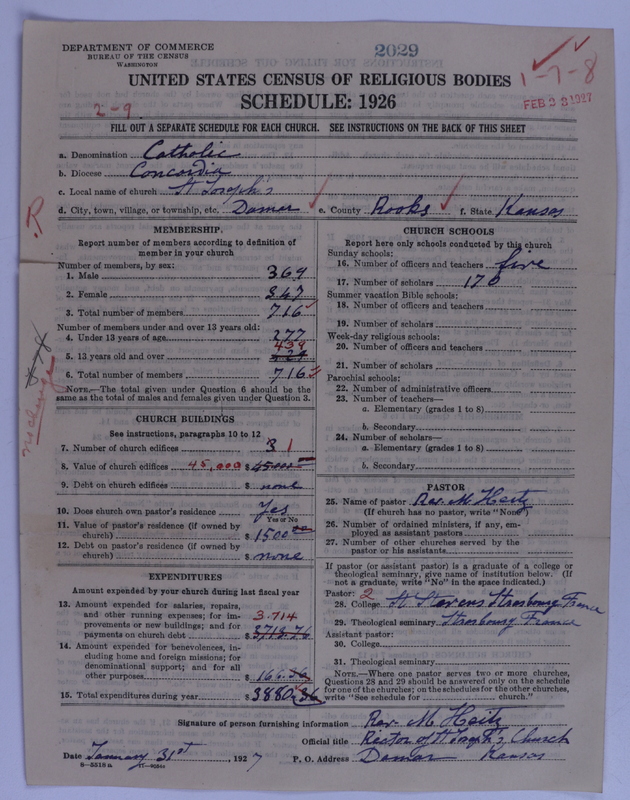 DEPARTMENT OF COMMERCE
BUREAU OF THE CENSUS
WASHINGTON
2029
1-7-8
UNITED STATES CENSUS OF RELIGIOUS BODIES
SCHEDULE: 1926
2-9
FEB 23 1927
FILL OUT A SEPARATE SCHEDULE FOR EACH CHURCH. SEE INSTRUCTIONS ON THE BACK OF THIS SHEET
a. Denomination Catholic
b. Diocese Concordia
c. Local name of church St Joseph's
d. City, town, village, or township, etc. Damar e. County Rooks f. State Kansas
R
MEMBERSHIP
Report number of members according to definition of
member in your church
Number of members, by sex:
1. Male 369
2. Female 347
3. Total number of members 716
Number of members under and over 13 years old:
4. Under 13 years of age 277
439
5. 13 years old and over
6. Total number of members 716
NOTE.—The total given under Question 6 should be the
same as the total of males and females given under Question 3.
CHURCH BUILDINGS
See instructions, paragraphs 10 to 12
7. Number of church edifices 3 1
8. Value of church edifices 45,000 $ 45000
9. Debt on church edifices $ none
10. Does church own pastor's residence Yes
Yes or No
11. Value of pastor's residence (if owned by
church) $ 1500
12. Debt on pastor's residence (if owned by
church) $ none
EXPENDITURES
Amount expended by your church during last fiscal year
13. Amount expended for salaries, repairs,
and other running expenses; for im-
provements or new buildings; and for
payments on church debt 3.714 $ 3713.76
14. Amount expended for benevolences, in-
cluding home and foreign missions; for
denominational support; and for all
other purposes $
15. Total expenditures during year $ 3880.36
CHURCH SCHOOLS
Report here only schools conducted by this church
Sunday schools:
16. Number of officers and teachers five
17. Number of scholars 170
Summer vacation Bible schools:
18. Number of officers and teachers
19. Number of scholars
Week-day religious schools:
20. Number of officers and teachers
21. Number of scholars
Parochial schools:
22. Number of administrative officers
23. Number of teachers—
a. Elementary (grades 1 to 8)
b. Secondary
24. Number of scholars—
a. Elementary (grades 1 to 8)
b. Secondary
PASTOR
25. Name of pastor Rev. M. Heitz
(If church has no pastor, write "None")
26. Number of ordained ministers, if any, em-
ployed as assistant pastors
27. Number of other churches served by the
pastor or his assistants
If pastor (or assistant pastor) is a graduate of a college or
theological seminary, give name of institution below. (If
not a graduate, write "No" in the space indicated.)
Pastor: 2
28. College St Stevens Strasbourg France
29. Theological seminary Strasbourg France
Assistant pastor:
30. College
31. Theological seminary
NOTE.—Where one pastor serves two or more churches,
Questions 28 and 29 should be answered only on the schedule
for one of the churches; on the schedules for the other churches,
write "See schedule for ........ church."
Signature of person furnishing information Rev. M Heitz
Official title Rector of St Joseph's Church
Date January 31st, 1927 P. O. Address Damar Kansas
8—5518a